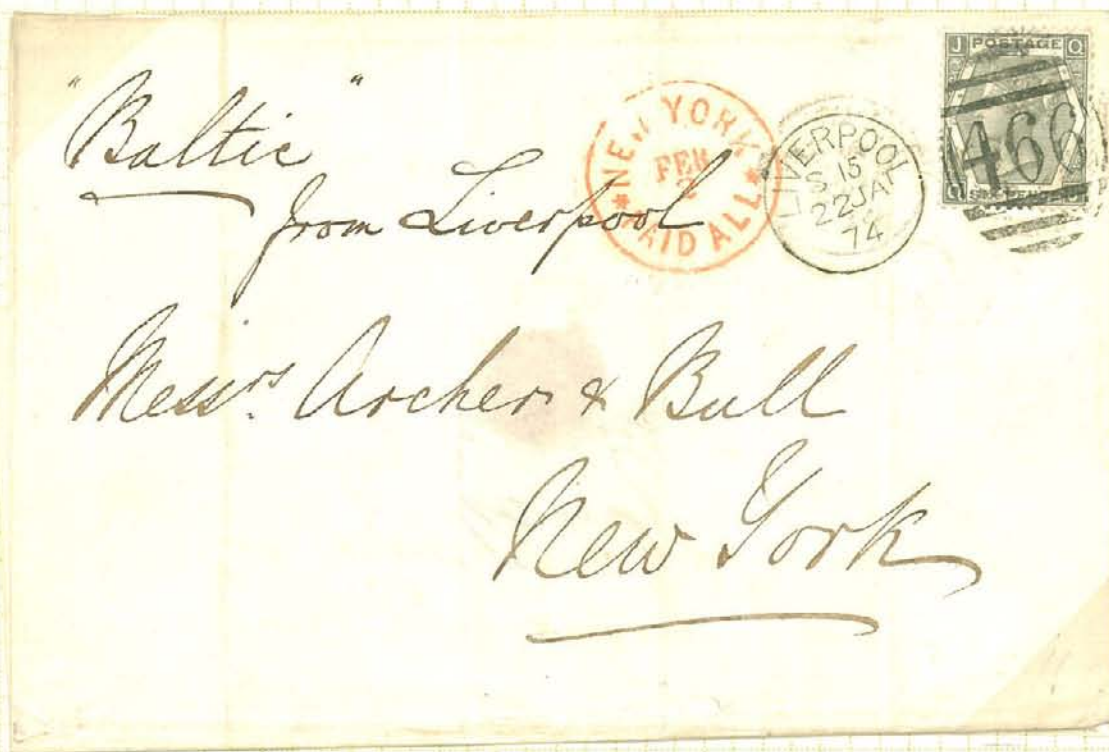 "Baltic"
from Liverpool
NEW YORK
FEB
2
PAID ALL
LIVERPOOL
S 15
22 JA
74
J POSTAGE Q
466
Q SIXPENCE J
Messrs. Archer & Bull
New York